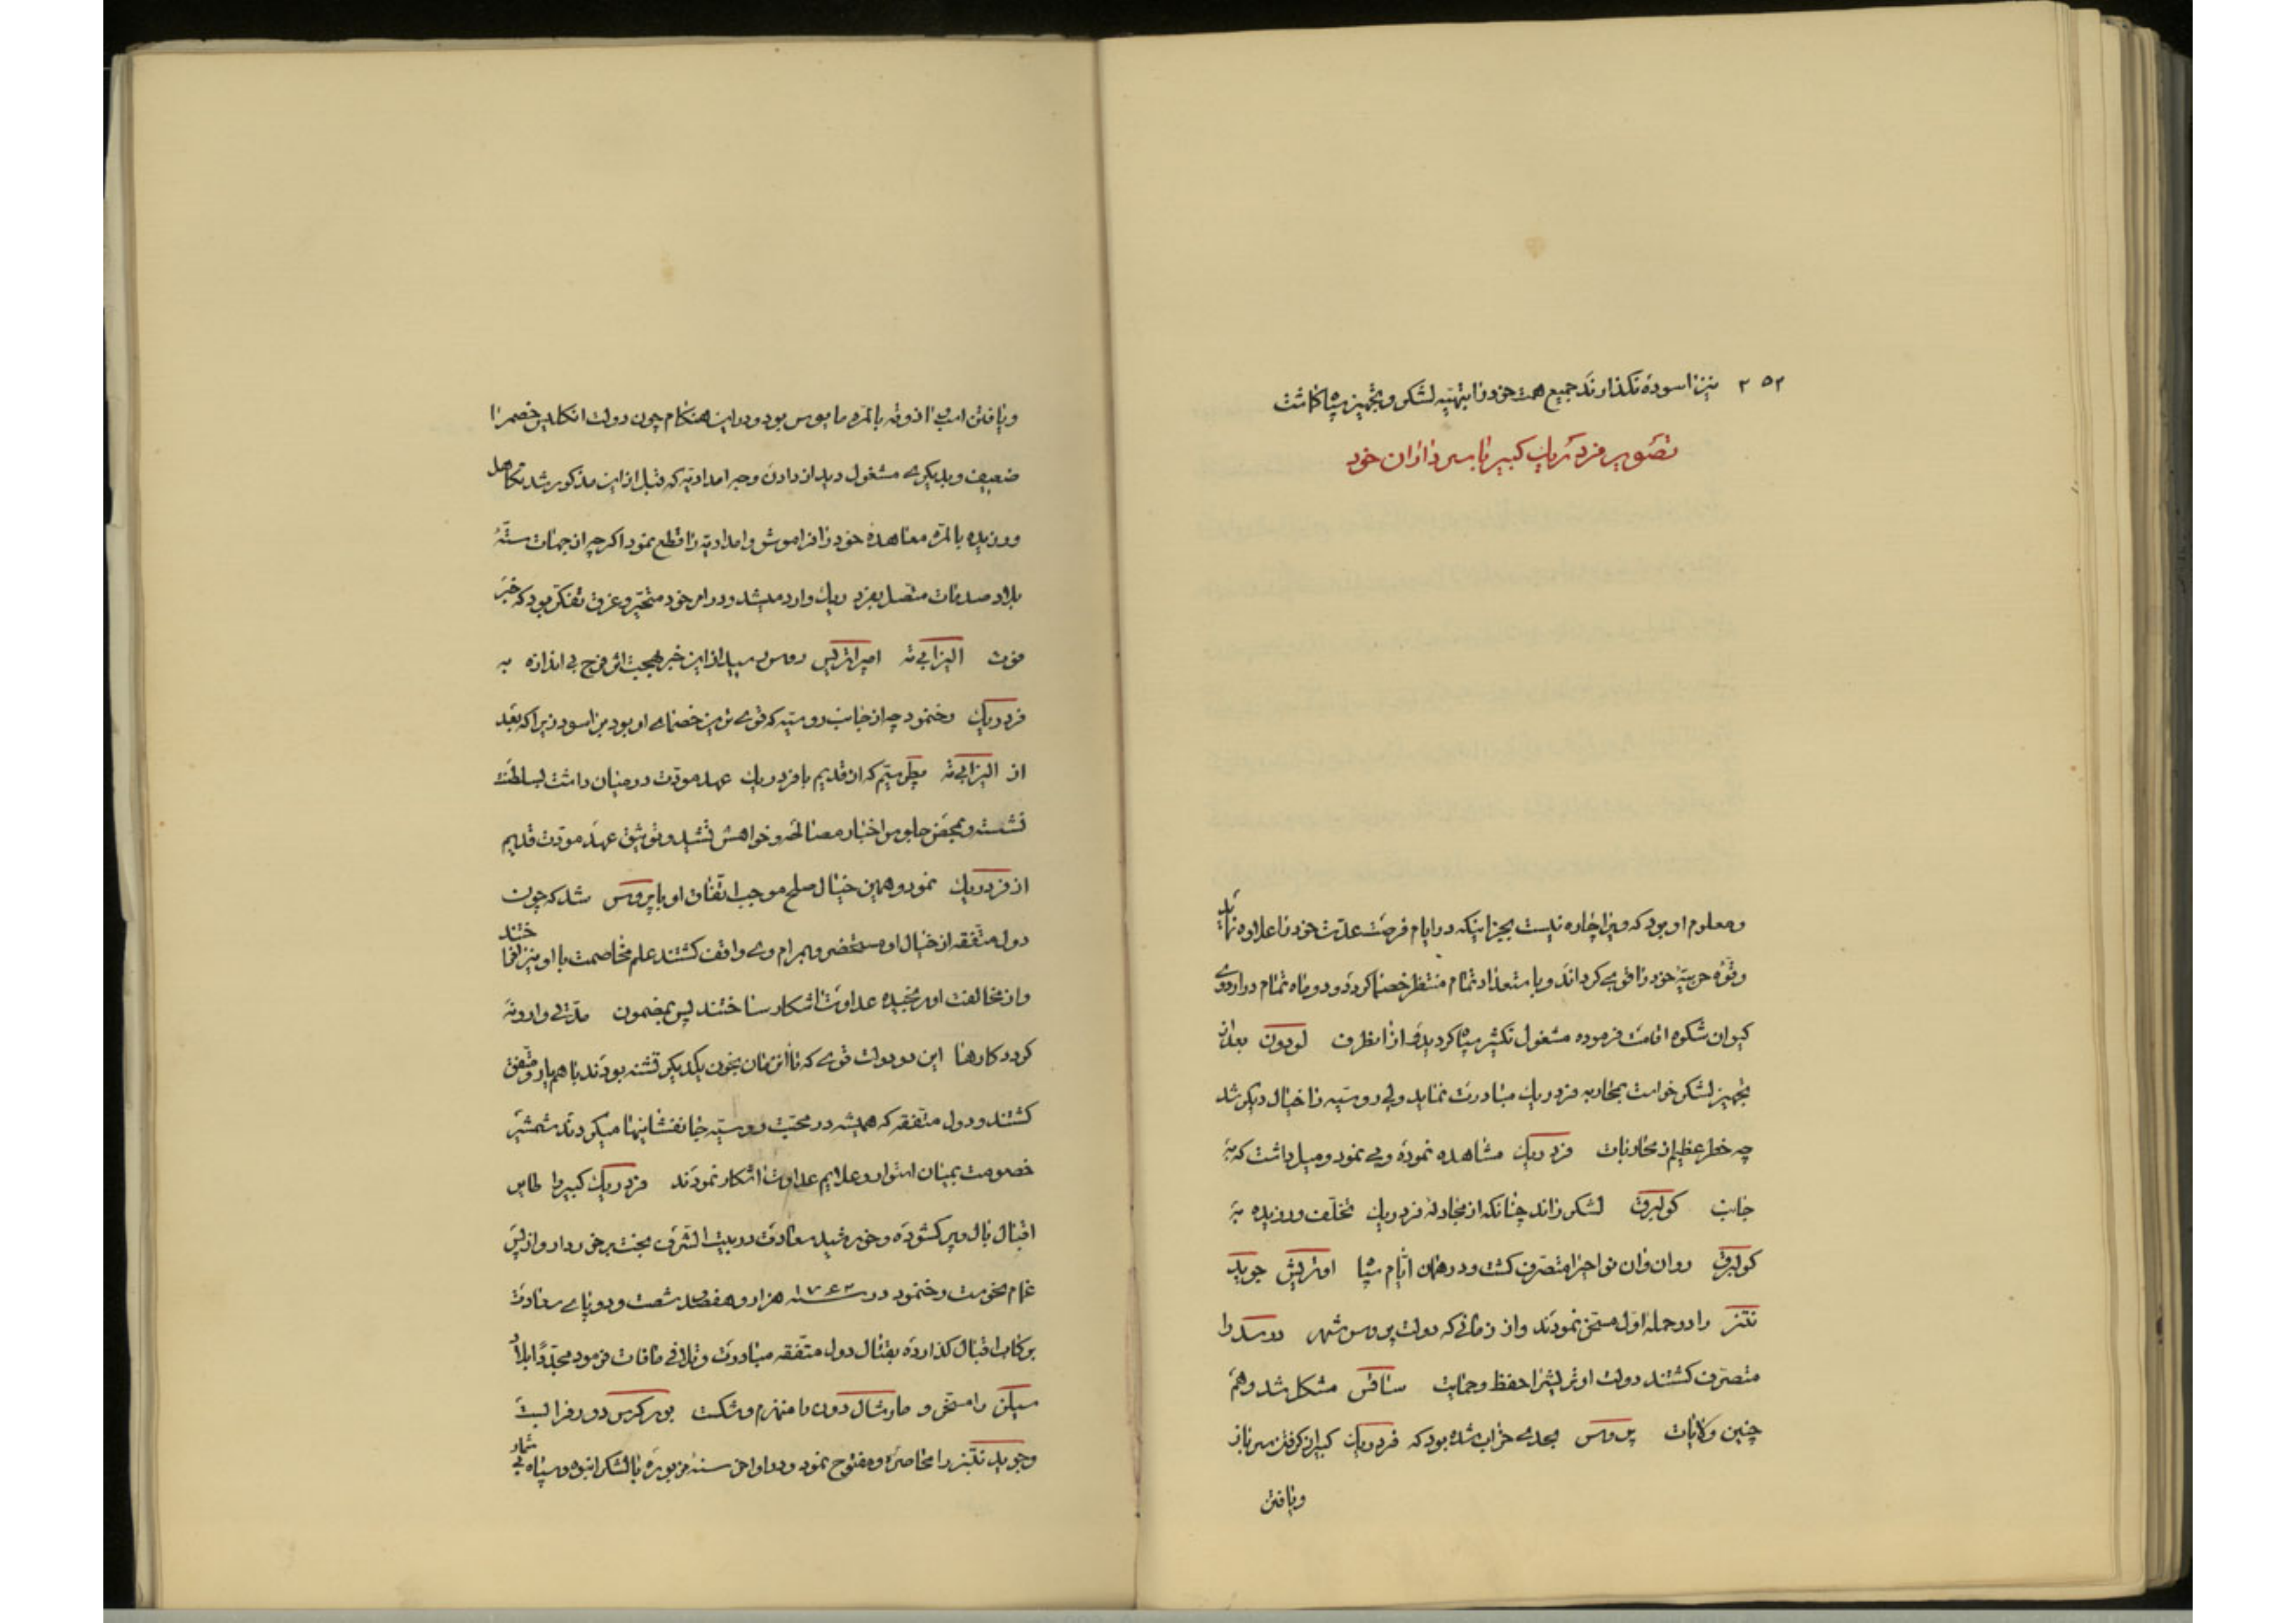 ۲۵۲ نیز اسوده نکذارند جمیع همت خود را بتهیه لشکر و تجهیز سپاه کماشت
تصویر فردریک کبیر با سرداران خود
و معلوم او بود که ویرا چاره نیست بجز اینکه در ایام فرصت عدت خود را علاوه نماید
و قوه حربیه خود را قوی کرداند و با ستعداد تمام منتظر خصما کردد و دو ماه تمام در اردوی
کیوان شکوه اقامت فرموده مشغول تکثیر سپاه کردید و از انطرف لودون بعد از
تجهیز لشکر خواست بمحاربه فردریک مبادرت نماید ولی روسیه را خیال دیکر شد
چه خطر عظیم از محاربات فردریک مشاهده نموده و می نمود و میل داشت که به
جانب کولبرق لشکر راند چنانکه از مجادله فردریک تخلف ورزیده به
کولبرق روان وان نواحیرا متصرف کشت و در همان ایام سپاه اوتریش جوید
نتز را در حمله اول مسخر نمودند و از زمانی که دولت پروس شهر درسد را
متصرف کشتند دولت اوتریشرا حفظ و حمایت ساقس مشکل شد و هم
چنین ولایات پروس بحدی خراب شده بود که فردریک کبیر از کرفتن سرباز
ویافتن
ویافتن اذوقه بالمره مایوس بود و در این هنکام چون دولت انکلیس خصم را
ضعیف و بدیکری مشغول دید از دادن وجه امدادیه که قبل از این مذکور شد تکاهل
ورزیده بالمره معاهده خود را فراموش و امدادیه را قطع نمود اکرچه از جهات سته
بلا و صدمات متصل بفردریک وارد میشد و در امر خود متحیر و غرق تفکر بود که خبر
فوت الیزابی ته امپراتریس روس رسید از این خبر بهجت اثر فرج بی اندازه به
فردریک رخ نمود چه از جانب روسیه که قوی ترین خصمای او بود براسود زیرا که بعد
از الیزابی ته پطر سیم که از قدیم با فردریک عهد مودت در میان داشت بسلطنت
نشست و بمحض جلوس اخبار مصالحه و خواهش تشیید و توثیق عهد مودت قدیم
از فردریک نمود و همین خیال صلح موجب اتفاق او با پروس شد که چون
دول متفقه از خیال او مستحضر و بمرام وی واقف کشتند علم مخاصمت با او نیز افراختند
و از مخالفت او رنجیده عداوت اشکار ساختند پس بمضمون مدتی وارونه
کردد کارها این دو دولت قوی که تا انزمان بخون یکدیکر تشنه بودند با هم یار و متفق
کشتند و دول متفقه که همیشه در محبت روسیه جانفشانیها میکردند شمشیر
خصومت بمیان استوار و علایم عداوت اشکار نمودند فردریک کبیر را طایر
اقبال بال و پر کشوده و خورشید سعادت در بیت الشرف بخت برخوردار و از پس
غمام نحوست رخ نمود در سنه ۱۷۶۲ هزار و هفصد و شصت و دو پای سعادت
بر رکاب اقبال کذارده بقتال دول متفقه مبادرت و تلافی مافات فرمود مجددا بلاد
سیلزی را مسخر و مارشال دون را منهزم و شکست بورکرس دورفرا لیست
و جوید نتیز را محاصره و مفتوح نمود و در اواخر سنه مزبوره با لشکر انبوه و سپاه بی شمار